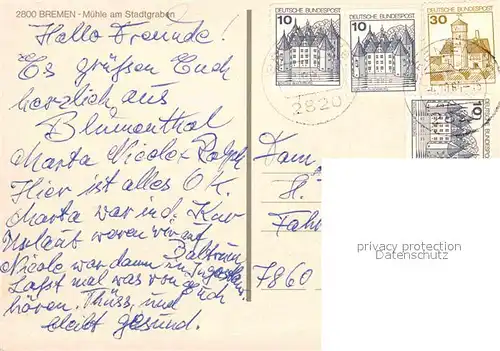 2800 BREMEN - Mühle am Stadtgraben
Hallo Freunde!
Es grüssen Euch
herzlich aus
Blumenthal
Marta Nicole + Ralph
Hier ist alles O.K.
Marta war in d. Kur
Urlaub waren wir auf
Baltrum
Nicole war dann in Jugoslaw.
Lasst mal was von Euch
hören. Thüss, und
bleibt gesund.
10 DEUTSCHE BUNDESPOST
10 DEUTSCHE BUNDESPOST
30 DEUTSCHE BUNDESPOST
10 DEUTSCHE BUNDESPOST
2820
Fam.
H.
Fahr
7860
privacy protection
DatenSchutz